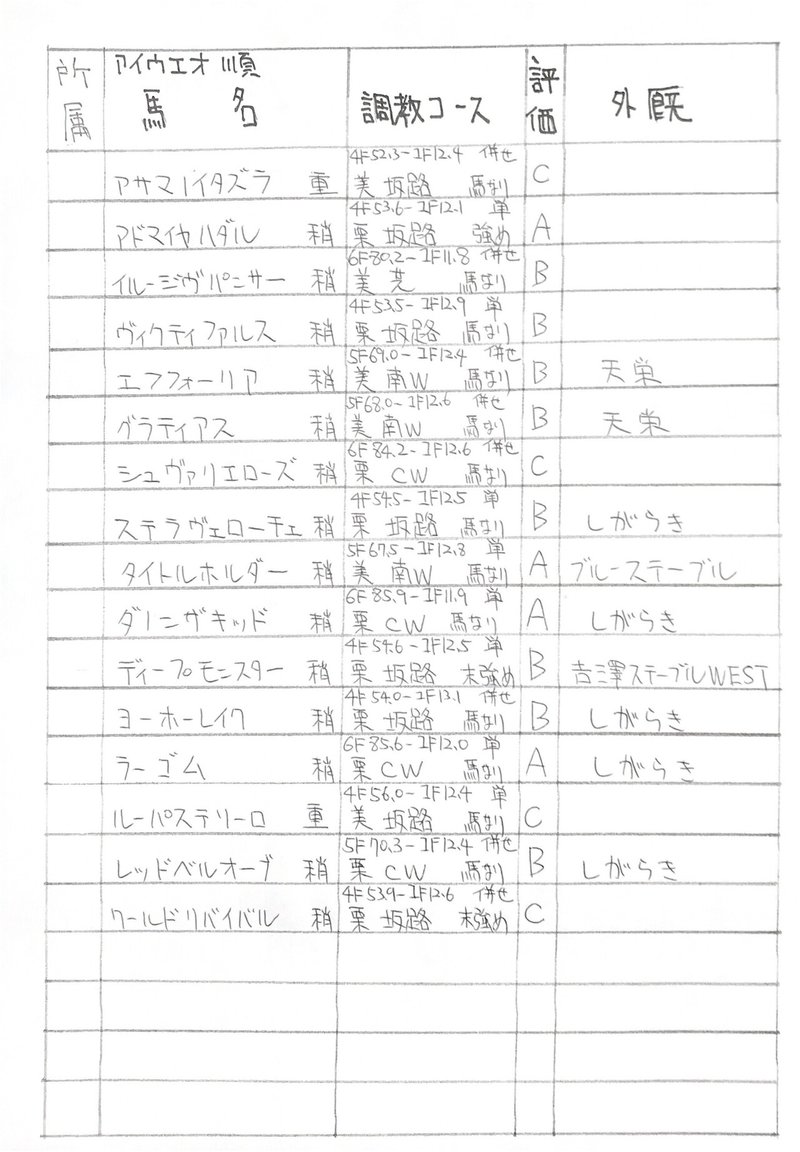 所属 アイウエオ順 馬名 調教コース 評価 外厩
4F52.3-1F12.4 併せ
アサマノイタズラ 重 美坂路 馬なり C
4F53.6-1F12.1 単
アドマイヤハダル 稍 栗坂路 強め A
6F80.2-1F11.8 併せ
イルージヴパンサー 稍 美芝 馬なり B
4F53.5-1F12.9 単
ヴィクティファルス 稍 栗坂路 馬なり B
5F69.0-1F12.4 併せ
エフフォーリア 稍 美南W 馬なり B 天栄
5F68.0-1F12.6 併せ
グラティアス 稍 美南W 馬なり B 天栄
6F84.2-1F12.6 併せ
シュヴァリエローズ 稍 栗CW 馬なり C
4F54.5-1F12.5 単
ステラヴェローチェ 稍 栗坂路 馬なり B しがらき
5F67.5-1F12.8 単
タイトルホルダー 稍 美南W 馬なり A ブルーステーブル
6F85.9-1F11.9 単
ダノンザキッド 稍 栗CW 馬なり A しがらき
4F54.6-1F12.5 単
ディープモンスター 稍 栗坂路 末強め B 吉澤ステーブルWEST
4F54.0-1F13.1 併せ
ヨーホーレイク 稍 栗坂路 馬なり B しがらき
6F85.6-1F12.0 単
ラーゴム 稍 栗CW 馬なり A しがらき
4F56.0-1F12.4 単
ルーパステソーロ 重 美坂路 馬なり C
5F70.3-1F12.4 併せ
レッドベルオーブ 稍 栗CW 馬なり B しがらき
4F53.9-1F12.6 併せ
ワールドリバイバル 稍 栗坂路 末強め C